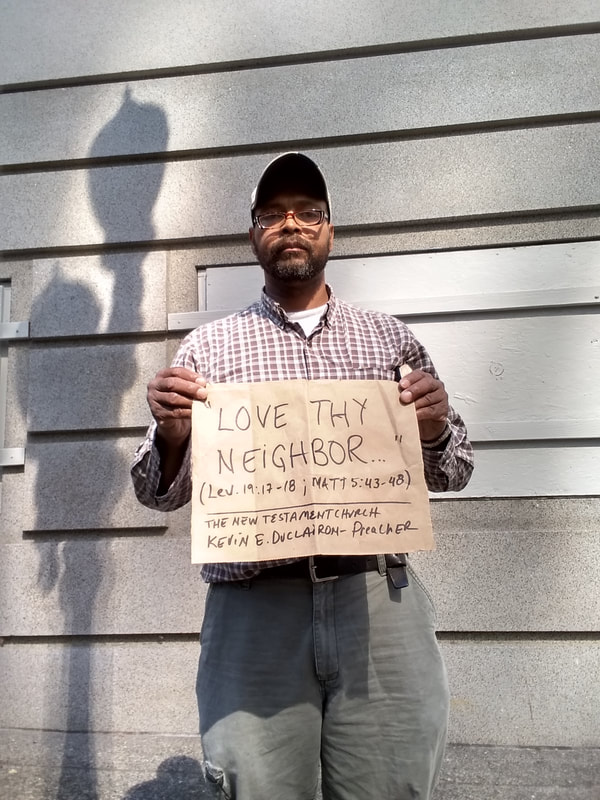 "LOVE THY
NEIGHBOR..."
(Lev. 19:17-18; MATT 5:43-48)
THE NEW TESTAMENT CHURCH
KEVIN E. DUCLAIRON- Preacher